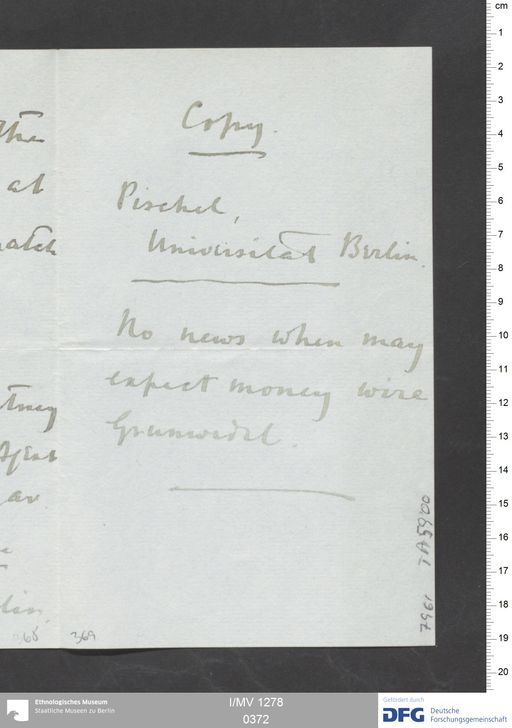 the
at
Copy.
Pischel,
Universität Berlin.
No news when may
expect money wire
Grunwedel.
Agent
368
369
1967 IA 5900
cm
1
2
3
4
5
6
7
8
9
10
11
12
13
14
15
16
17
18
19
20
Ethnologisches Museum
Staatliche Museen zu Berlin
I/MV 1278
0372
Gefördert durch
DFG Deutsche
Forschungsgemeinschaft